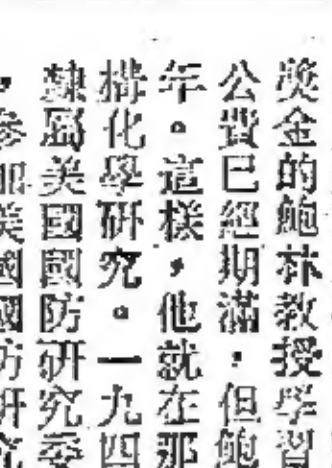 獎金的鮑林教授學習
公費已經期滿，但鮑
年。這樣，他就在那
構化學研究。一九四
隸屬美國國防研究委
，參加美國國防研究